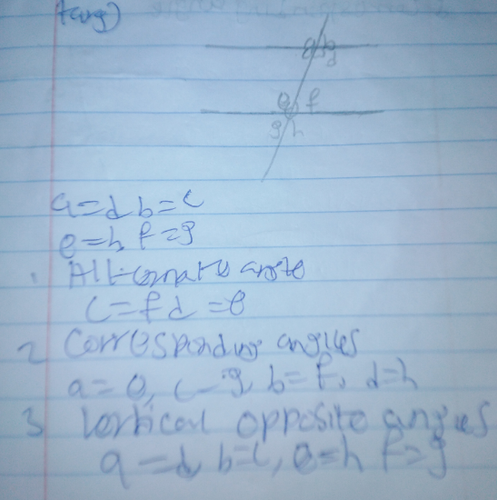 e f
g h
a=d b=c
e=h, f=g
1. Alternate angle
c=f d=e
2 Corresponding angles
a=e, c=g, b=f, d=h
3 Vertical opposite angles
a=d, b=c, e=h f=g